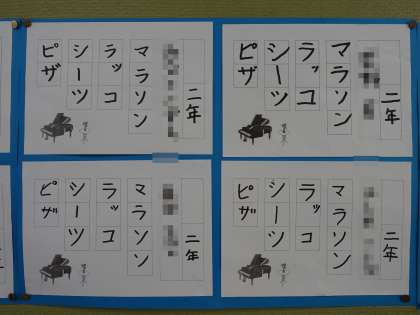 二年
マラソン
ラッコ
シーツ
ピザ
二年
マラソン
ラッコ
シーツ
ピザ
二年
マラソン
ラッコ
シーツ
ピザ
二年
マラソン
ラッコ
シーツ
ピザ